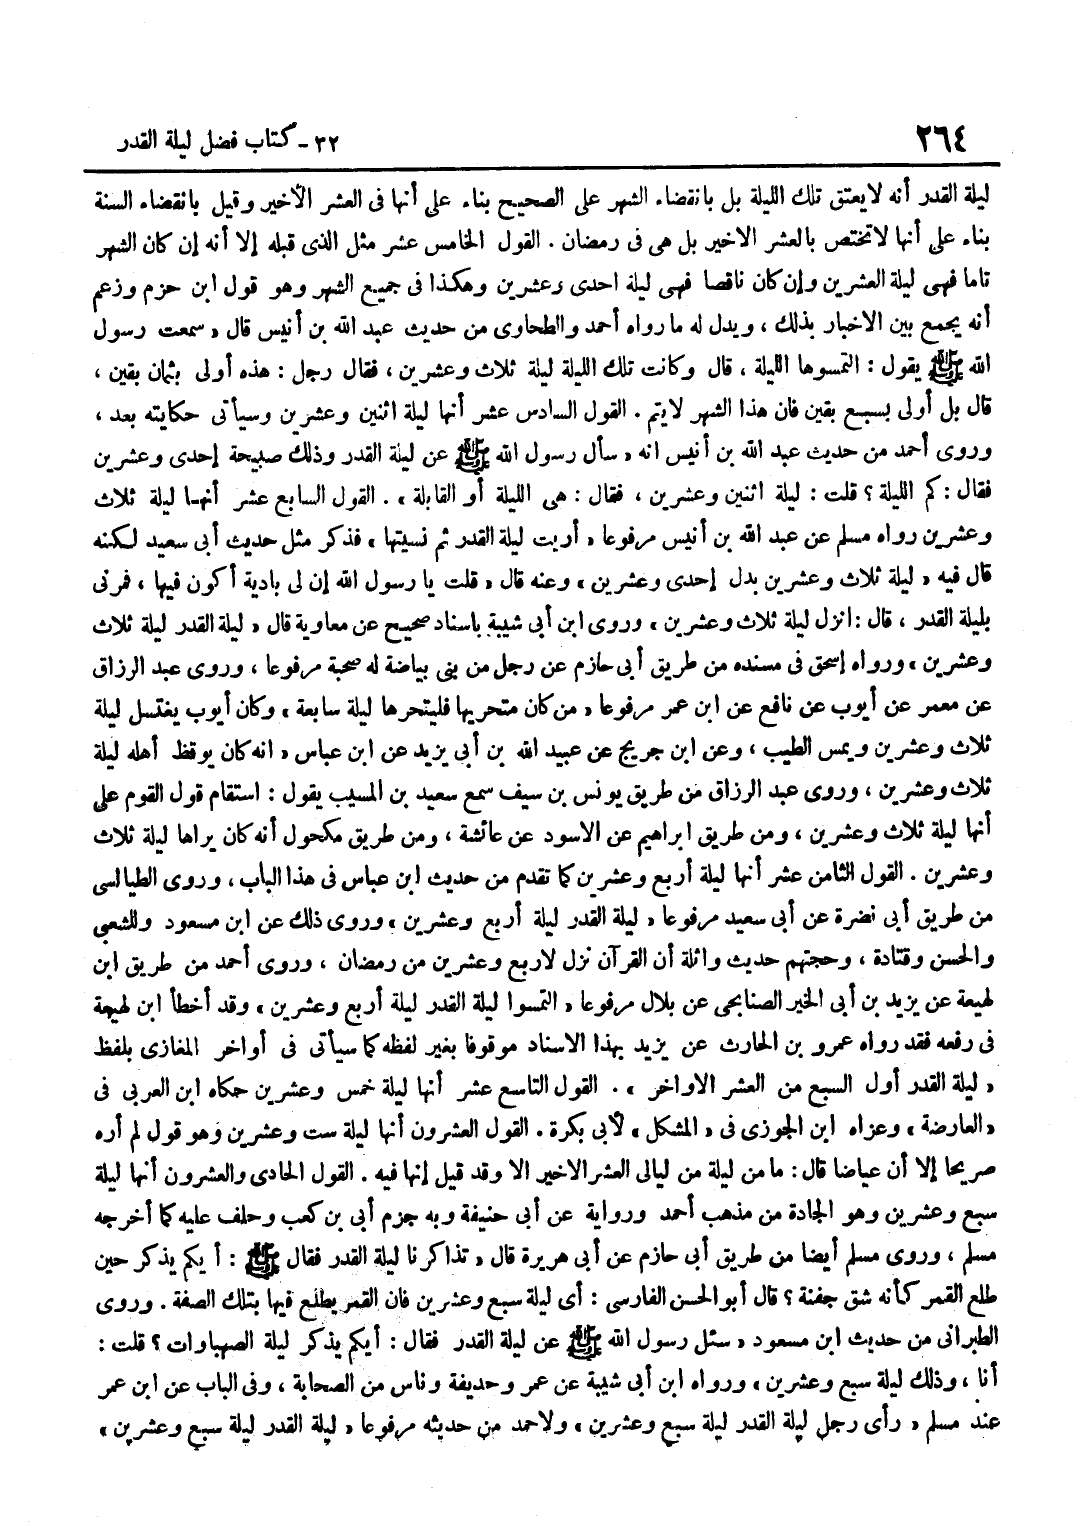 ٢٦٤
٣٢ - كتاب فضل ليلة القدر
ليلة القدر أنه لا يعتق تلك الليلة بل بانقضاء الشهر على الصحيح بناء على أنها فى العشر الأخير وقيل بانقضاء السنة
بناء على أنها لا تختص بالعشر الاخير بل هى فى رمضان . القول الخامس عشر مثل الذى قبله إلا أنه إن كان الشهر
تاما فهى ليلة العشرين وإن كان ناقصا فهى ليلة احدى وعشرين وهكذا فى جميع الشهر وهو قول ابن حزم وزعم
أنه يجمع بين الاخبار بذلك ، ويدل له ما رواه أحمد والطحاوى من حديث عبد الله بن أنيس قال « سمعت رسول
الله ﷺ يقول : التمسوها الليلة ، قال وكانت تلك الليلة ليلة ثلاث وعشرين ، فقال رجل : هذه أولى بثمان بقين ،
قال بل أولى بسبع بقين فان هذا الشهر لا يتم . القول السادس عشر أنها ليلة اثنين وعشرين وسيأتى حكايته بعد ،
وروى أحمد من حديث عبد الله بن أنيس انه « سأل رسول الله ﷺ عن ليلة القدر وذلك صبيحة إحدى وعشرين
فقال : كم الليلة ؟ قلت : ليلة اثنين وعشرين ، فقال : هى الليلة أو القابلة » . القول السابع عشر أنها ليلة ثلاث
وعشرين رواه مسلم عن عبد الله بن أنيس مرفوعا « أريت ليلة القدر ثم نسيتها » فذكر مثل حديث أبى سعيد لكنه
قال فيه « ليلة ثلاث وعشرين بدل إحدى وعشرين » وعنه قال « قلت يا رسول الله إن لى بادية أكون فيها ، فمرنى
بليلة القدر ، قال : انزل ليلة ثلاث وعشرين » وروى ابن أبى شيبة باسناد صحيح عن معاوية قال « ليلة القدر ليلة ثلاث
وعشرين » ورواه إسحق فى مسنده من طريق أبى حازم عن رجل من بنى بياضة له صحبة مرفوعا ، وروى عبد الرزاق
عن معمر عن أيوب عن نافع عن ابن عمر مرفوعا « من كان متحريها فليتحرها ليلة سابعة » وكان أيوب يغتسل ليلة
ثلاث وعشرين ويمس الطيب ، وعن ابن جريج عن عبيد الله بن أبى يزيد عن ابن عباس « انه كان يوقظ أهله ليلة
ثلاث وعشرين ، وروى عبد الرزاق من طريق يونس بن سيف سمع سعيد بن المسيب يقول : استقام قول القوم على
أنها ليلة ثلاث وعشرين ، ومن طريق ابراهيم عن الاسود عن عائشة ، ومن طريق مكحول أنه كان يراها ليلة ثلاث
وعشرين . القول الثامن عشر أنها ليلة أربع وعشرين كما تقدم من حديث ابن عباس فى هذا الباب ، وروى الطيالسى
من طريق أبى نضرة عن أبى سعيد مرفوعا « ليلة القدر ليلة أربع وعشرين » وروى ذلك عن ابن مسعود وللشعبى
والحسن وقتادة ، وحجتهم حديث واثلة أن القرآن نزل لاربع وعشرين من رمضان ، وروى أحمد من طريق ابن
لهيعة عن يزيد بن أبى الخير الصنابحى عن بلال مرفوعا « التمسوا ليلة القدر ليلة أربع وعشرين » وقد أخطأ ابن لهيعة
فى رفعه فقد رواه عمرو بن الحارث عن يزيد بهذا الاسناد موقوفا بغير لفظه كما سيأتى فى أواخر المغازى بلفظ
« ليلة القدر أول السبع من العشر الاواخر » . القول التاسع عشر أنها ليلة خمس وعشرين حكاه ابن العربى فى
« العارضة » وعزاه ابن الجوزى فى « المشكل » لأبى بكرة . القول العشرون أنها ليلة ست وعشرين وهو قول لم أره
صريحا إلا أن عياضا قال : ما من ليلة من ليالى العشر الاخير الا وقد قيل إنها فيه . القول الحادى والعشرون أنها ليلة
سبع وعشرين وهو الجادة من مذهب أحمد ورواية عن أبى حنيفة وبه جزم أبى بن كعب وحلف عليه كما أخرجه
مسلم ، وروى مسلم أيضا من طريق أبى حازم عن أبى هريرة قال « تذاكرنا ليلة القدر فقال ﷺ : أيكم يذكر حين
طلع القمر كأنه شق جفنة ؟ قال أبو الحسن الفارسى : أى ليلة سبع وعشرين فان القمر يطلع فيها بتلك الصفة . وروى
الطبرانى من حديث ابن مسعود « سئل رسول الله ﷺ عن ليلة القدر فقال : أيكم يذكر ليلة الصهباوات ؟ قلت :
أنا ، وذلك ليلة سبع وعشرين » ورواه ابن أبى شيبة عن عمر وحذيفة وناس من الصحابة ، وفى الباب عن ابن عمر
عند مسلم « رأى رجل ليلة القدر ليلة سبع وعشرين » ولاحمد من حديثه مرفوعا « ليلة القدر ليلة سبع وعشرين »